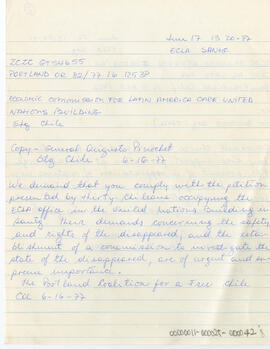 June 17 13 20-77
ECLA SANTE
ZCZC GTSN655
PORTLAND OR 82/77 16 1253P
ECONOMIC COMMISSION FOR LATIN AMERICA CARE UNITED
NATIONS BUILDING
Stg. Chile
Copy - General Augusto Pinochet
Stg. Chile 6-16-77
We demand that you comply with the petition
presented by thirty Chileans occupying the
ECLA office in the United Nations Building in
Santg. Their demands concerning the safety
and rights of the disappeared, and the estab
lishment of a commission to investigate the
state of the disappeared, are of urgent and su
preme importance.
The Portland Coalition for a Free Chile
Col 6-16-77
0000011-000025-000042